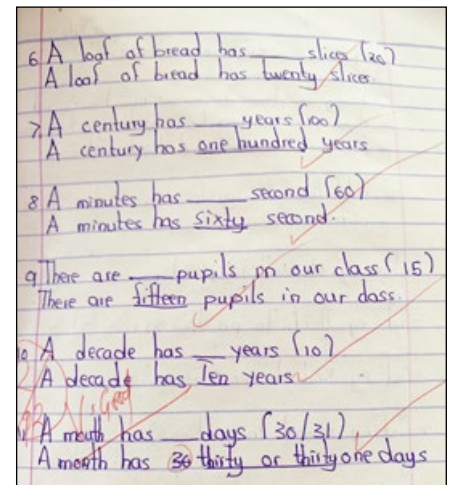 6 A loaf of bread has ___ slices (20)
A loaf of bread has twenty slices
7. A century has ___ years (100)
A century has one hundred years
8 A minutes has ___ second (60)
A minutes has sixty second.
9 There are ___ pupils in our class (15)
There are fifteen pupils in our class.
10 A decade has ___ years (10)
A decade has Ten years
A month has ___ days (30/31)
A month has 30 thirty or thirty one days